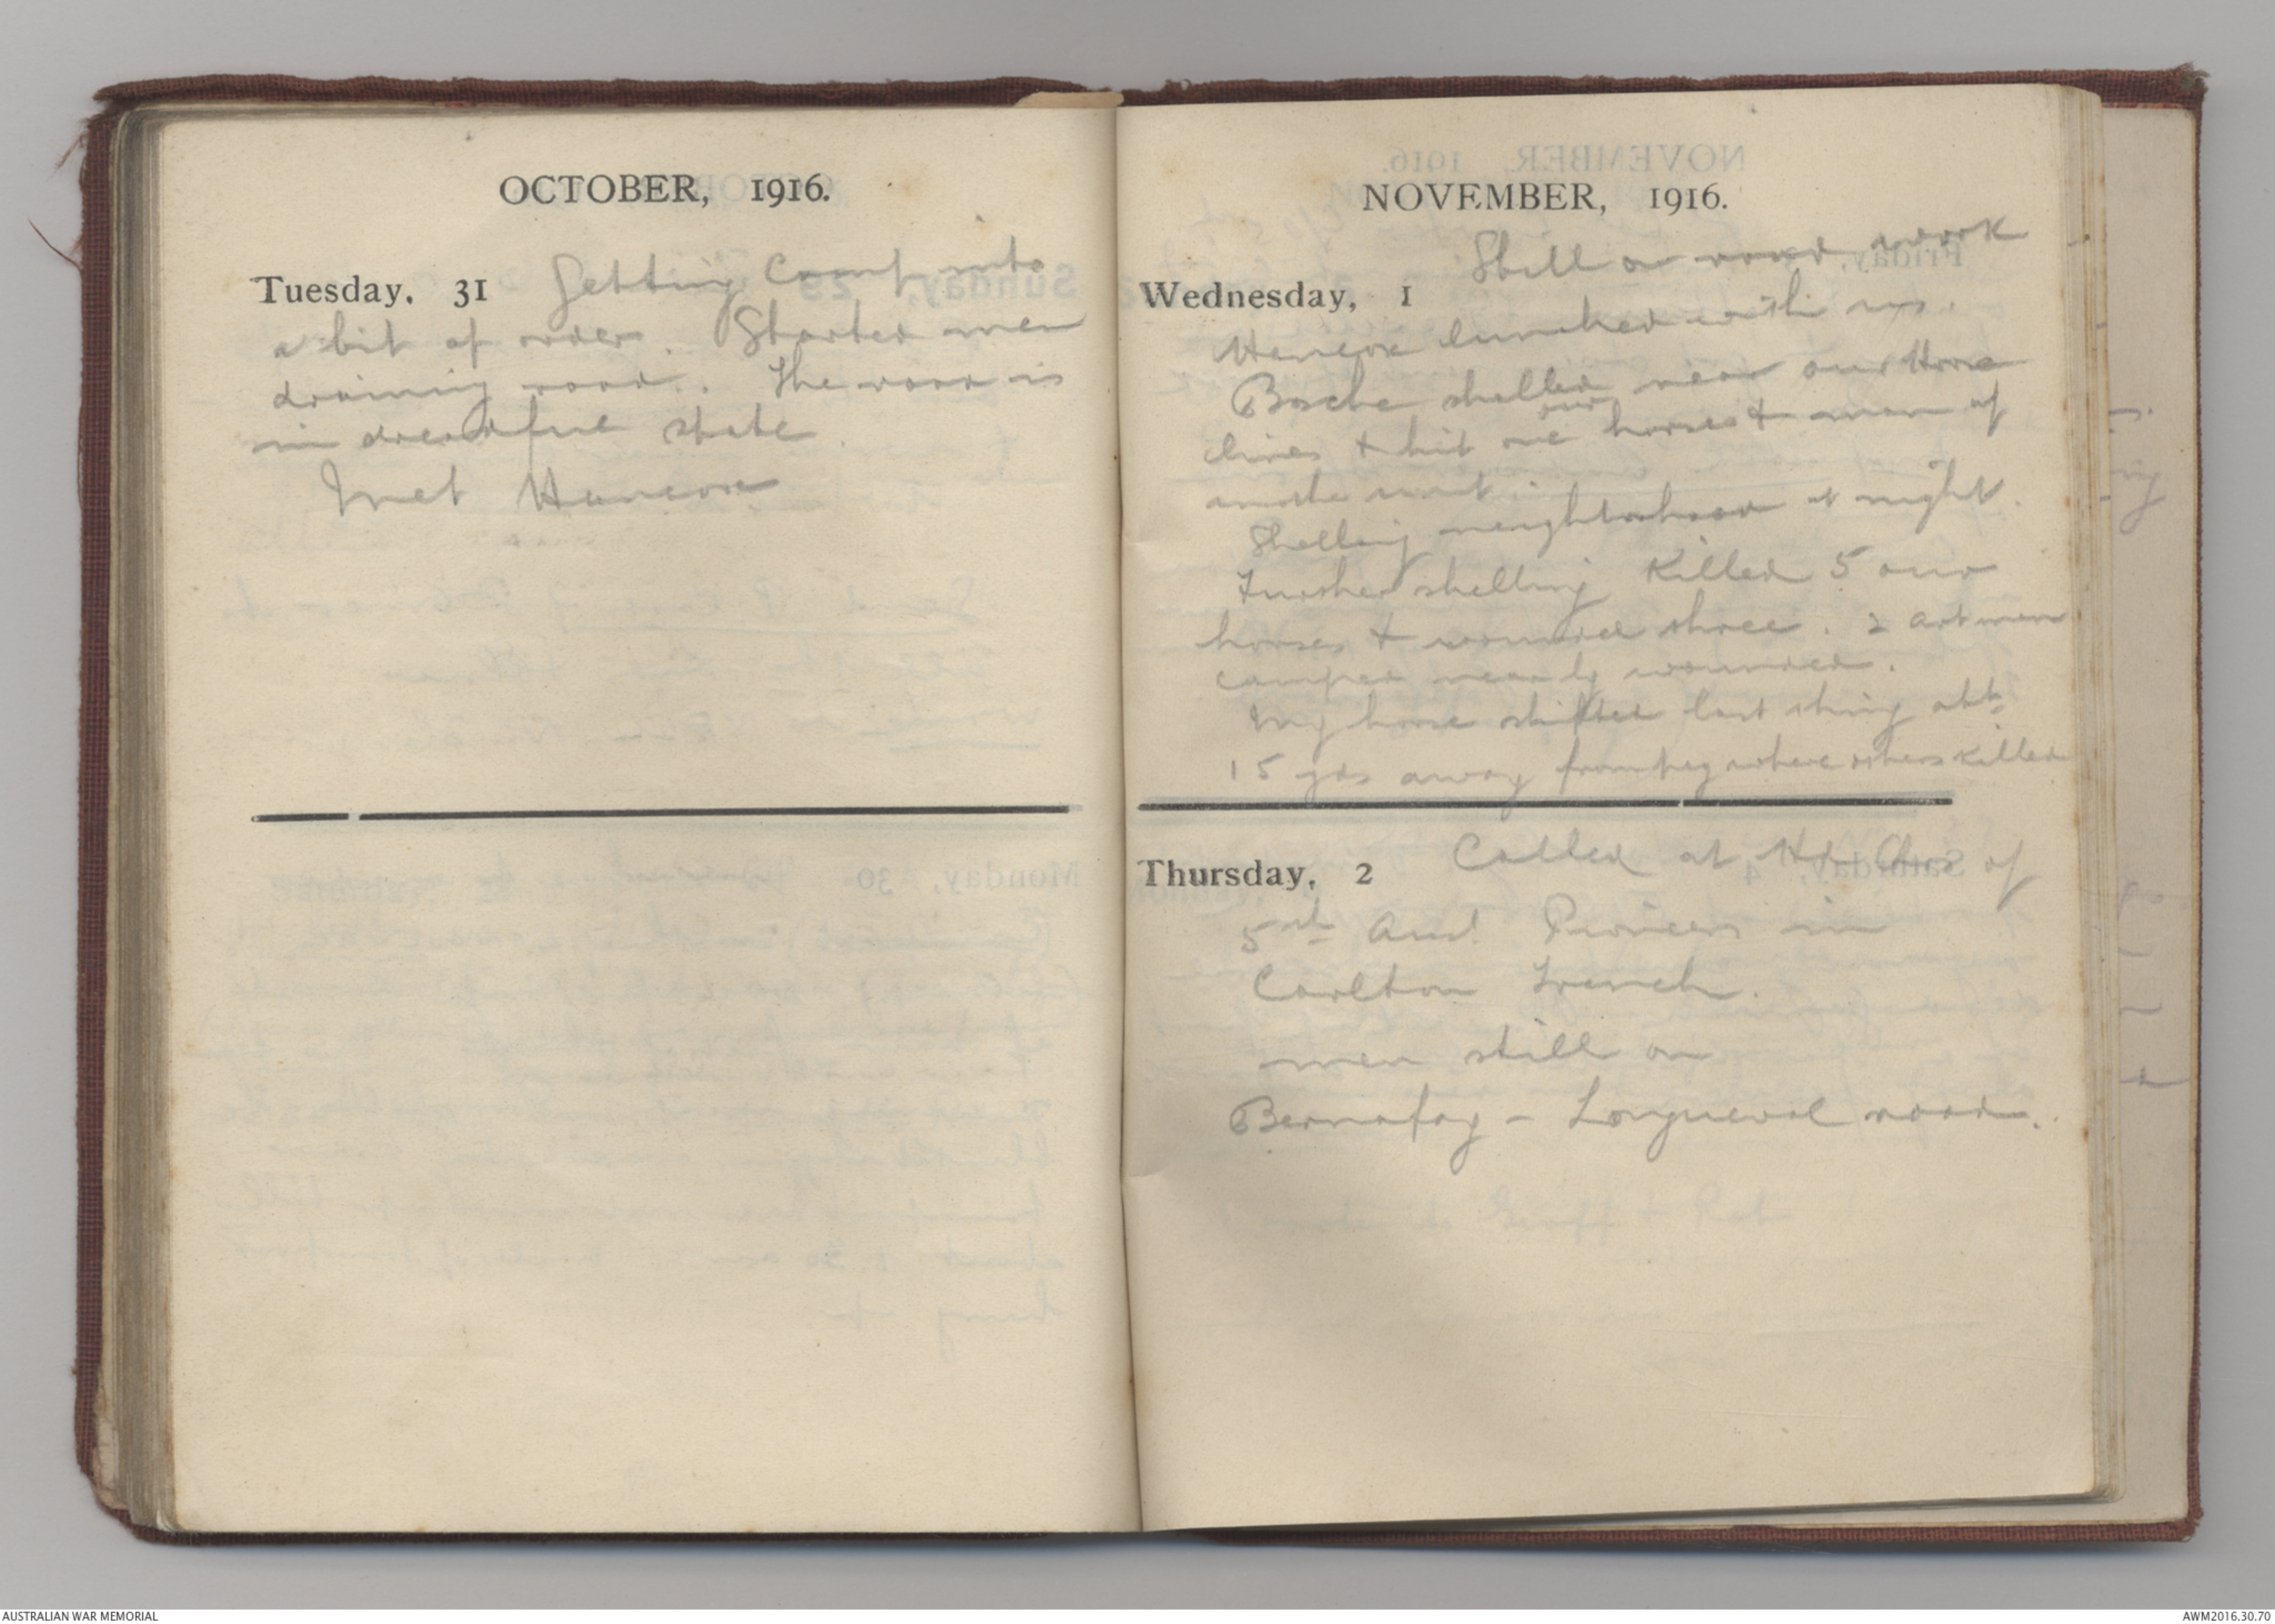 OCTOBER, 1916.
Tuesday, 31 Getting Camp into
a bit of order. Started men
draining road. The road is
in dreadful state.
Met Hancox
NOVEMBER, 1916.
Wednesday, 1 Still on road work
Hancox lunched with us.
Bosche shelled near our Horse
lines & hit one our horses & man of
another unit.
Shelling neighborhood at night.
Further shelling killed 5 our
horses & wounded three. 2 art men
camped nearby wounded.
My horse shifted last thing abt
15 yds away from peg where others killed
Thursday, 2 Called at Hd Qrs of
5th Aust Pioneers in
Carlton Trench.
men still on
Bernafay - Longueval road.
AUSTRALIAN WAR MEMORIAL
AWM2016.30.70